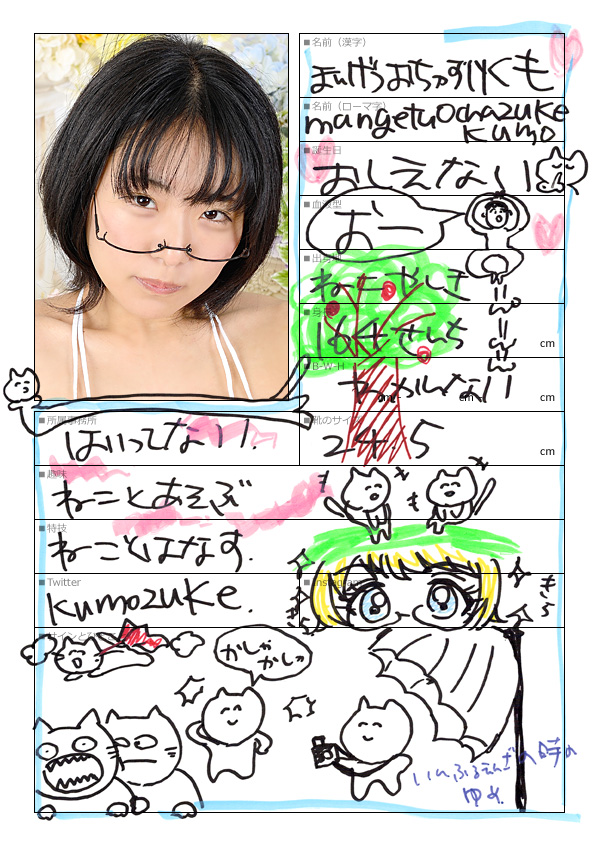 ■名前（漢字）
まんげつおちゃずけくも
■名前（ローマ字）
mangetuochazuke
kumo
■誕生日
おしえない
■血液型
おー
■出身地
ねこやしき
■身長
164せんち
cm
■B-W-H
わかんない
cm
cm
cm
■所属事務所
はいってない.
■靴のサイズ
24.5
cm
■趣味
ねことあそぶ
■特技
ねことはなす.
■Twitter
kumozuke.
■Instagram
きら
きら
■サインと
かしゃ
かしゃっ
の時の
ゆめ.